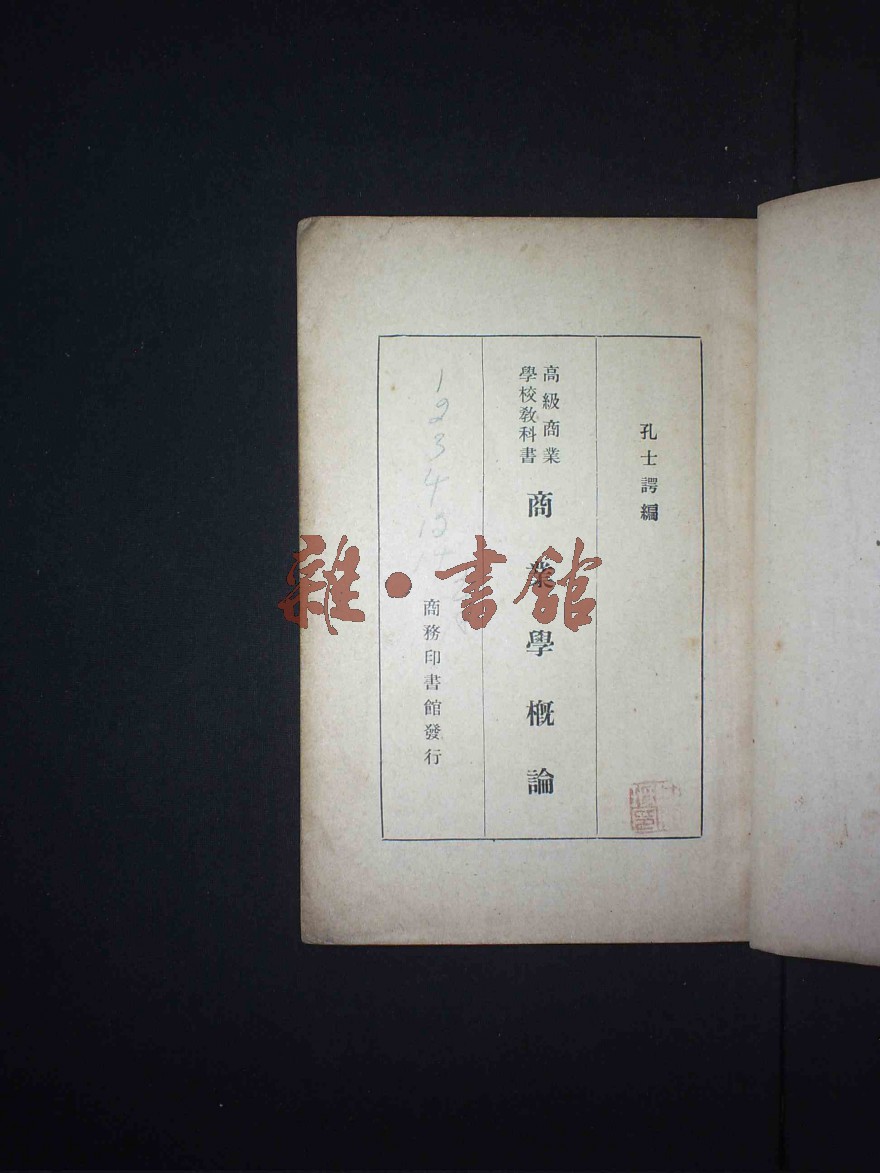 孔士諤編
高級商業
學校教科書
商業學概論
1 2 3 4
商務印書館發行
雜·書館